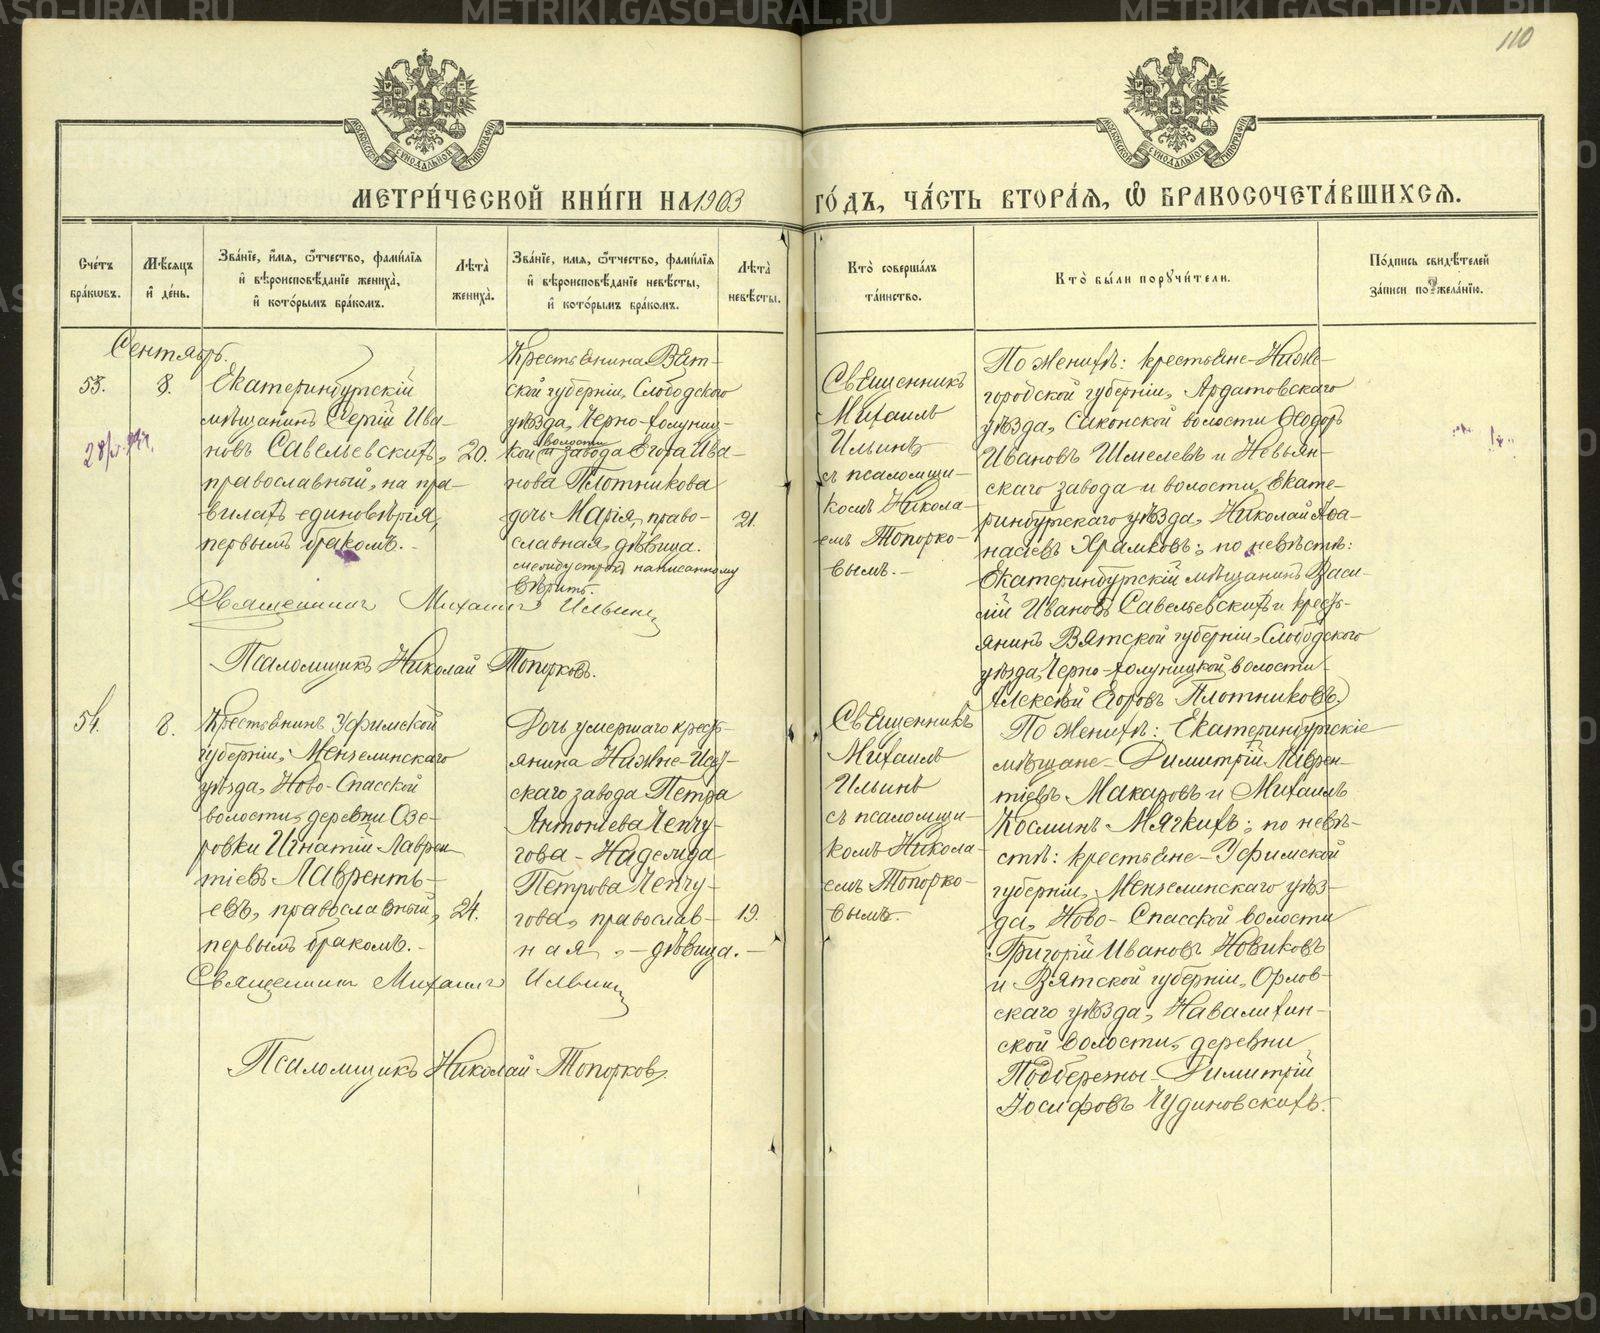 110
МЕТРИ́ЧЕСКОЙ КНИ́ГИ НА 1903 ГО́ДЪ, ЧА́СТЬ ВТОРА́Я, Ѡ БРАКОСОЧЕТА́ВШИХСЯ.
МОСКОВСКОЙ СУНОДАЛЬНОЙ ТИПОГРАФІИ
МОСКОВСКОЙ СУНОДАЛЬНОЙ ТИПОГРАФІИ
Сче́тъ
бра́кѡвъ.
Мѣ́сяцъ
и де́нь.
Зва́нїе, и́мя, ѻ́тчество, фами́лїя
и вѣроисповѣ́данїе жениха̀,
и кото́рымъ бра́комъ.
Лѣта̀
жениха̀.
Зва́нїе, имя, ѻ́тчество, фами́лїя
и вѣроисповѣ́данїе невѣ́сты,
и кото́рымъ бра́комъ.
Лѣта̀
невѣ́сты.
Кто̀ соверша́лъ
та́инство.
Кто̀ бы́ли поручи́тели.
По́дпись свидѣ́телей
за́писи по жела́нїю.
Сентябрь.
53.
8.
Екатеринбургскій
мѣщанинъ Сергій Ива-
новъ Савельевскихъ,
православный, на пра-
вилахъ единовѣрія,
первымъ бракомъ.-
20.
Крестьянина Вят-
ской губерніи, Слободского
уѣзда, Черно-Холуниц-
кой волости и завода Егора Ива-
нова Плотникова
дочь Марія, право-
славная, дѣвица.
между строкъ написанному
вѣрить.
21.
Священникъ
Михаилъ
Ильинъ
съ псаломщи-
комъ Никола-
емъ Топорко-
вымъ.-
По женихѣ: крестьяне-Ниже-
городской губерніи, Ардатовскаго
уѣзда, Саконской волости Ѳеодоръ
Ивановъ Шмелевъ и Невьян-
скаго завода и волости, Екате-
ринбургскаго уѣзда, Николай Аѳа-
насьевъ Храмковъ; по невѣстѣ:
Екатеринбургскій мѣщанинъ Васи-
лій Ивановъ Савельевскихъ и кресть-
янинъ Вятской губерніи, Слободского
уѣзда, Черно-Холуницкой волости
Алексѣй Егоровъ Плотниковъ
Священникъ Михаилъ Ильинъ
Псаломщикъ Николай Топорковъ.
54.
8.
Крестьянинъ Уфимской
губерніи, Мензелинскаго
уѣзда, Ново-Спасской
волости, деревни Озе-
ровки Игнатій Лаврен-
тіевъ Лавренть-
евъ, православный,
первымъ бракомъ.-
24.
Дочь умершаго кресть-
янина Нижне-Исет-
скаго завода Петра
Антоніева Чепчу-
гова - Надежда
Петрова Чепчу-
гова, православ-
ная, - дѣвица.-
19.
Священникъ
Михаилъ
Ильинъ
съ псаломщи-
комъ Никола-
емъ Топорко-
вымъ.
По женихѣ: Екатеринбургскіе
мѣщане - Димитрій Лаврен-
тіевъ Макаровъ и Михаилъ
Косминъ Мягкихъ; по невѣ-
стѣ: крестьяне - Уфимской
губерніи, Мензелинскаго уѣз-
да, Ново-Спасской волости
Григорій Ивановъ Новиковъ
и Вятской губерніи, Орлов-
скаго уѣзда, Навалихин-
ской волости, деревни
Подбережны - Димитрій
Іосифовъ Чудиновскихъ.
Священникъ Михаилъ Ильинъ
Псаломщикъ Николай Топорковъ.
METRIKI.GASO-URAL.RU